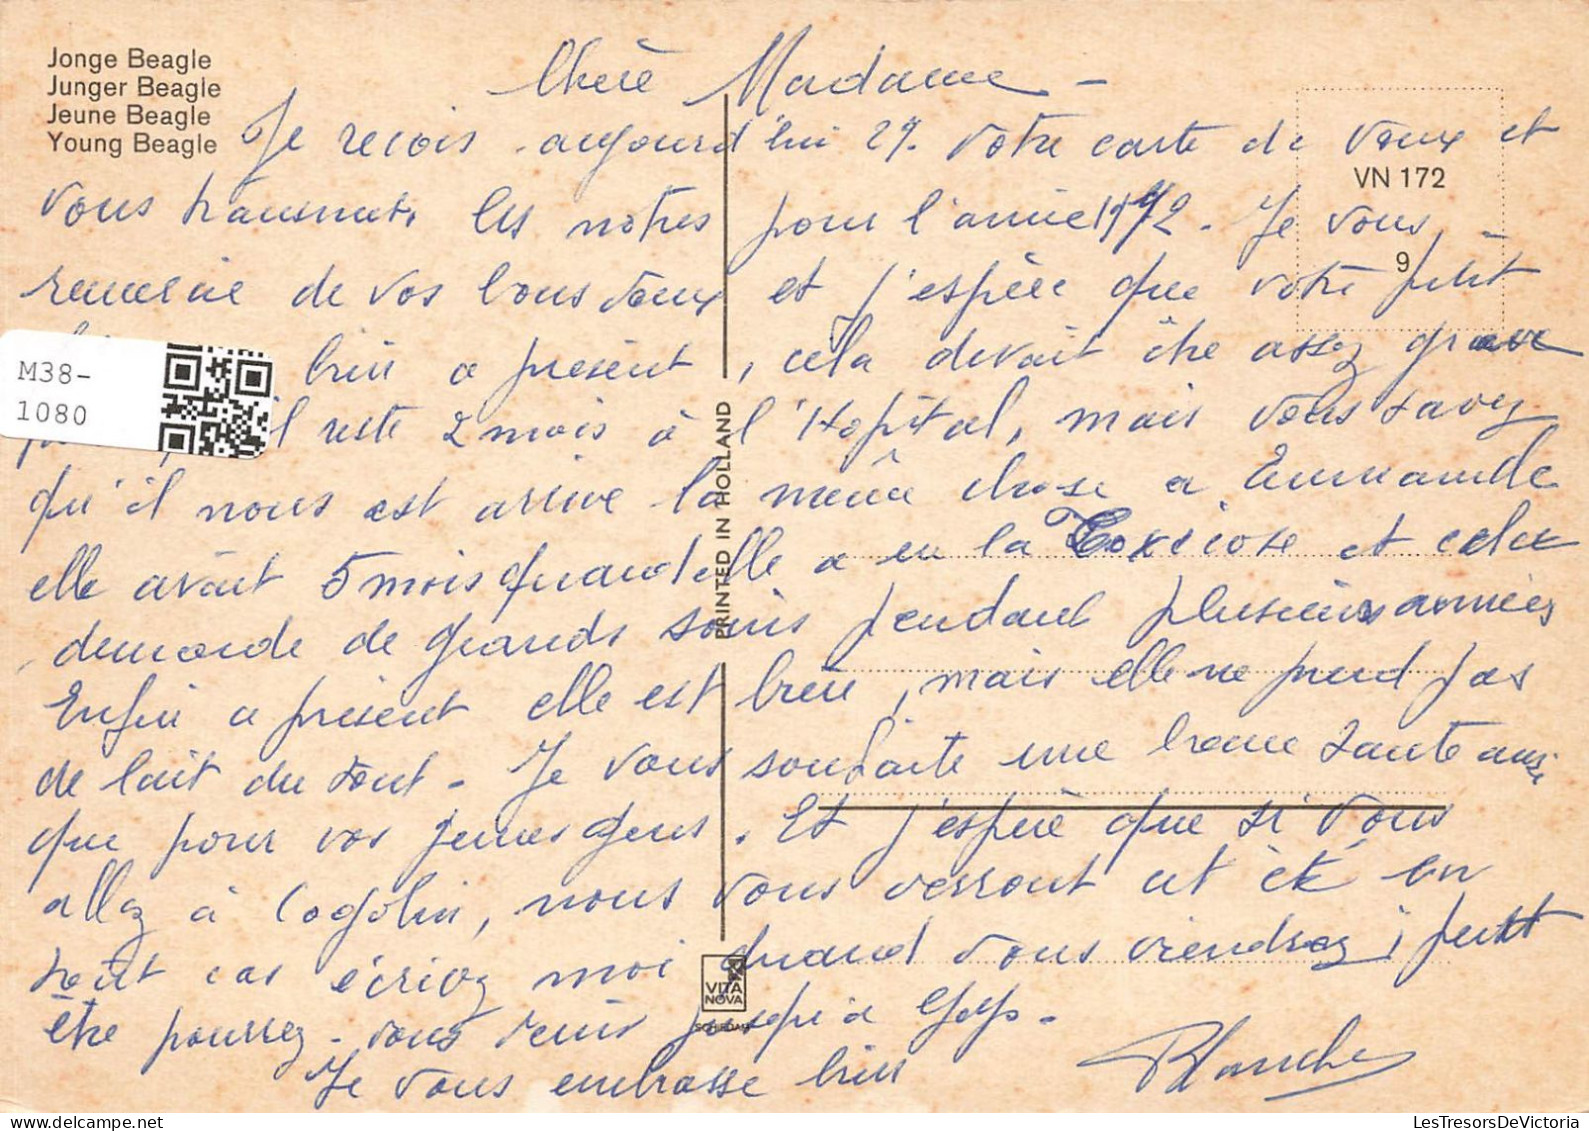 Jonge Beagle
Junger Beagle
Jeune Beagle
Young Beagle
Chère Madame -
Je reçois aujourd'hui 29. votre carte de voeux et
vous transmets les notres pour l'année 1992. Je vous
remercie de vos bons voeux et j'espère que votre petit
bien a present, cela devait être assez grave
il reste 2 mois à l'Hopital, mais vous savez
qu'il nous est arrive la même chose a Emmanuelle
elle avait 5 mois quand elle a eu la Toxicose et cela
demande de grands soins pendant plusieurs années
Enfin a présent elle est bien, mais elle ne prend pas
de lait du tout. Je vous souhaite une bonne santé ainsi
que pour vos jeunes gens. Et j'espère que si vous
allez à Cogolin, nous vous verront cet été en
tout cas écrivez moi quand vous viendrez, peut
être pourrez-vous venir jusqu'à
Je vous embrasse bien
Blanche
VN 172
9
PRINTED IN HOLLAND
VITA
NOVA
SCHIEDAM
M38-
1080
LesTresorsDeVictoria.com